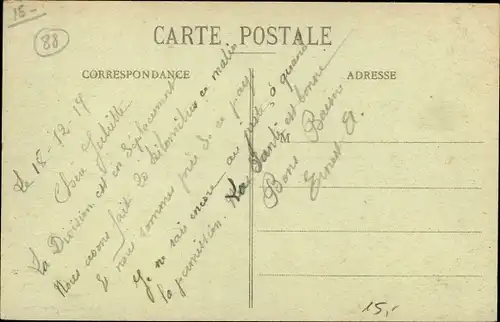 15-
88
CARTE POSTALE
CORRESPONDANCE
ADRESSE
M
Le 18-12-17
Chère Juliette
La Division est en déplacement
Nous avons fait 20 kilomètres ce matin
Et nous sommes près de ce pays
Je ne sais encore au juste à quand
la permission. La Santé est bonne
Bons Baisers
Ernest
15,-